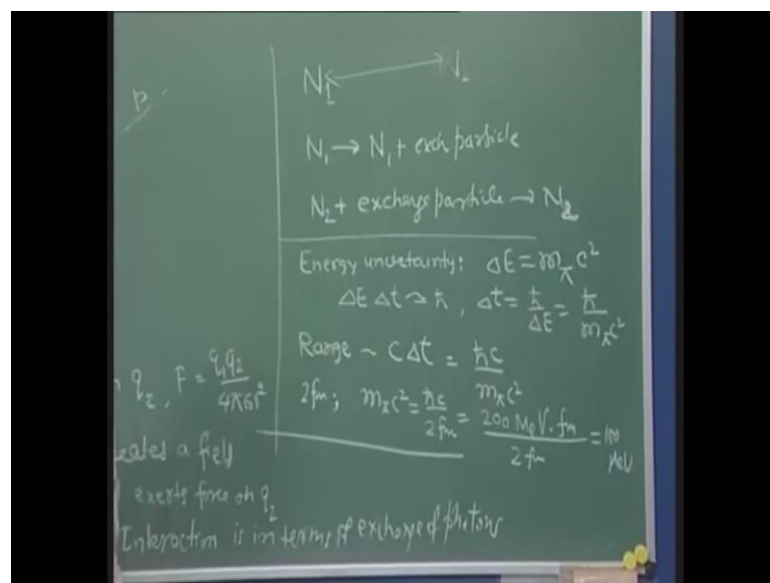 P.
N₁ ⟷ N₂
N₁ → N₁ + exch particle
N₂ + exchange particle → N₂
Energy uncertainty: ΔE = m_πc²
ΔE Δt ~ ħ, Δt = ħ/ΔE = ħ/m_πc²
Range ~ CΔt = ħc/m_πc²
2fm; m_πc² = ħc/2fm = 200 MeV.fm/2 fm = 100 MeV
q₂, F = q₁q₂/4πε₀r²
eates a field
exerts force on q₂
Interaction is in terms of exchange of photons